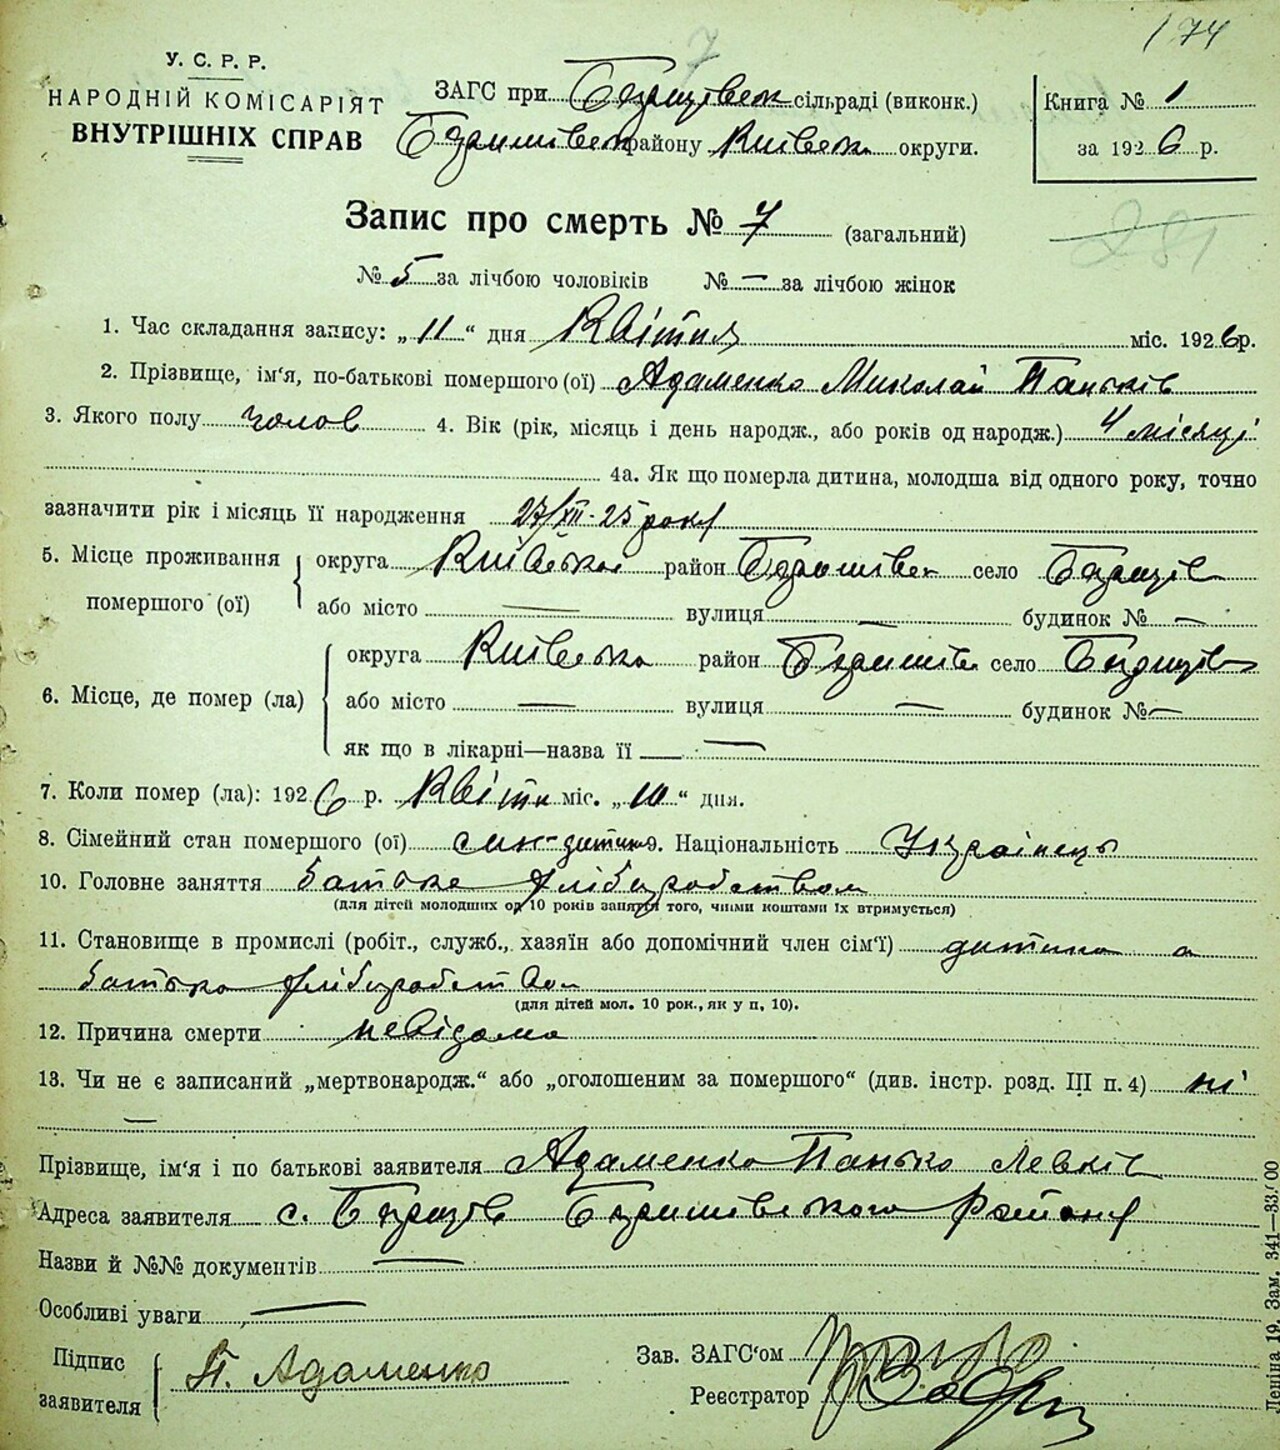 174
7
У. С. Р. Р.
НАРОДНІЙ КОМІСАРІЯТ
ВНУТРІШНІХ СПРАВ
ЗАГС при сільраді (виконк.)
району Київськ округи.
Книга № 1
за 1926 р.
Запис про смерть № 7 (загальний)
281
№ 5 за лічбою чоловіків № — за лічбою жінок
1. Час складання запису: „11“ дня Квітня міс. 1926 р.
2. Прізвище, ім'я, по-батькові помершого (ої) Адаменко Миколай Паньків
3. Якого полу чолов 4. Вік (рік, місяць і день народж., або років од народж.) 4 місяці
4а. Як що померла дитина, молодша від одного року, точно
зазначити рік і місяць її народження 27/XII-25 року
5. Місце проживання помершого (ої) округа Київська район село
або місто — вулиця — будинок № —
6. Місце, де помер (ла) округа Київська район село
або місто — вулиця — будинок № —
як що в лікарні—назва її —
7. Коли помер (ла): 1926 р. Квітн міс. „10“ дня.
8. Сімейний стан помершого (ої) син-дитина 9. Національність Українець
10. Головне заняття батька хліборобством
(для дітей молодших од 10 років заняття того, чиїми коштами їх втримується)
11. Становище в промислі (робіт., служб., хазяїн або допомічний член сім'ї) дитина а
батька хліборобством
(для дітей мол. 10 рок., як у п. 10).
12. Причина смерти невідома
13. Чи не є записаний „мертвонародж.“ або „оголошеним за помершого“ (див. інстр. розд. III п. 4) ні
—
Прізвище, ім'я і по батькові заявителя Адаменко Панько Левків
Адреса заявителя с. району
Назви й №№ документів —
Особливі уваги —
Підпис заявителя П. Адаменко
Зав. ЗАГС'ом
Реєстратор
Леніна 19. Зам. 341—33100